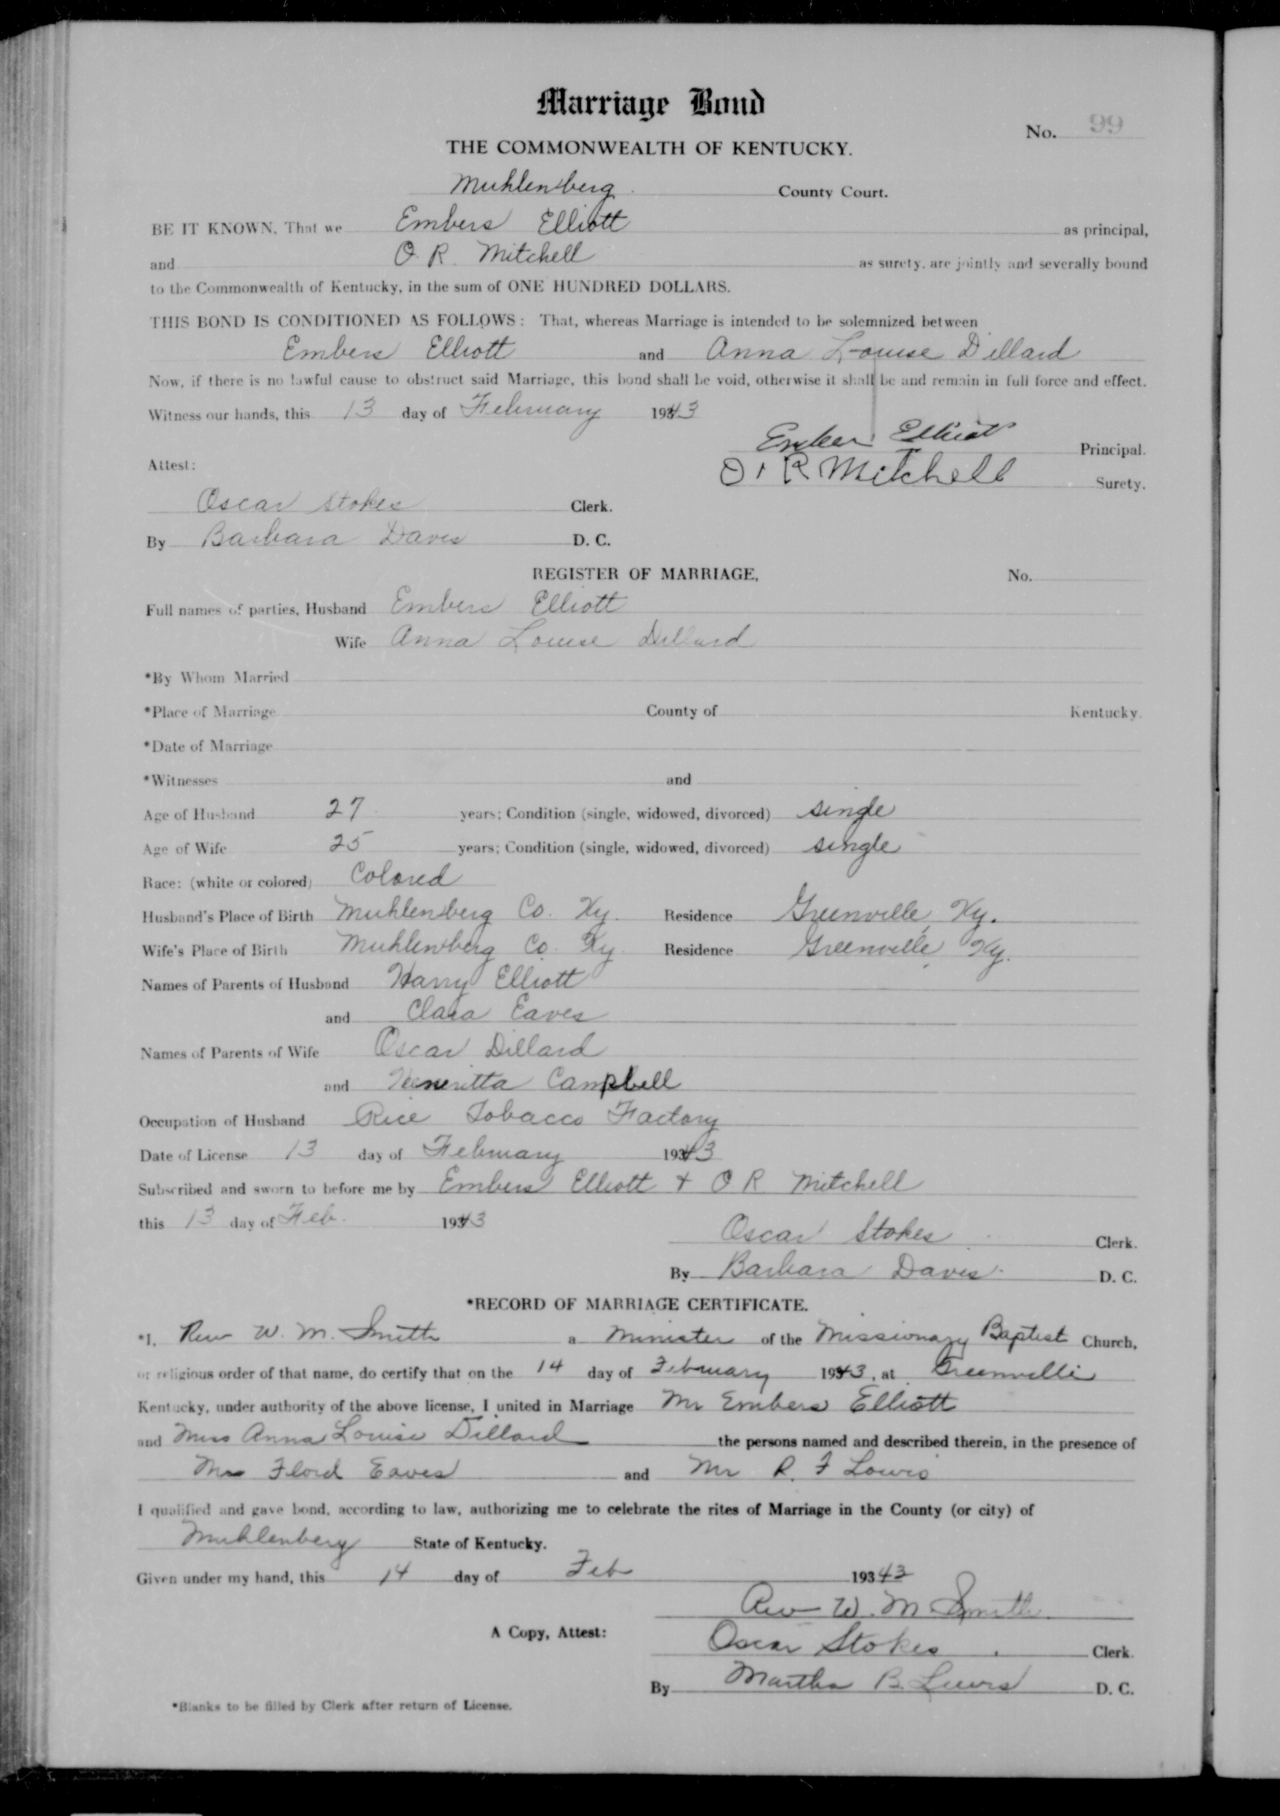 Marriage Bond
No. 99
THE COMMONWEALTH OF KENTUCKY.
Muhlenberg County Court.
BE IT KNOWN, That we Embers Elliott as principal,
and O. R. Mitchell as surety, are jointly and severally bound
to the Commonwealth of Kentucky, in the sum of ONE HUNDRED DOLLARS.
THIS BOND IS CONDITIONED AS FOLLOWS: That, whereas Marriage is intended to be solemnized between
Embers Elliott and Anna Louise Dillard
Now, if there is no lawful cause to obstruct said Marriage, this bond shall be void, otherwise it shall be and remain in full force and effect.
Witness our hands, this 13 day of February 1943
Ember Elliott Principal.
Attest: O. R Mitchell Surety.
Oscar Stokes Clerk.
By Barbara Davis D. C.
REGISTER OF MARRIAGE, No.
Full names of parties, Husband Embers Elliott
Wife Anna Louise Dillard
*By Whom Married
*Place of Marriage County of Kentucky.
*Date of Marriage
*Witnesses and
Age of Husband 27 years; Condition (single, widowed, divorced) single
Age of Wife 25 years; Condition (single, widowed, divorced) single
Race: (white or colored) Colored
Husband's Place of Birth Muhlenberg Co. Ky. Residence Greenville, Ky.
Wife's Place of Birth Muhlenberg Co. Ky. Residence Greenville, Ky.
Names of Parents of Husband Harry Elliott
and Clara Eaves
Names of Parents of Wife Oscar Dillard
and Heneritta Campbell
Occupation of Husband Rice Tobacco Factory
Date of License 13 day of February 1943
Subscribed and sworn to before me by Embers Elliott & O R Mitchell
this 13 day of Feb. 1943
Oscar Stokes Clerk.
By Barbara Davis D. C.
*RECORD OF MARRIAGE CERTIFICATE.
*I, Rev W. M. Smith a Minister of the Missionary Baptist Church,
or religious order of that name, do certify that on the 14 day of February 1943, at Greenville
Kentucky, under authority of the above license, I united in Marriage Mr Embers Elliott
and Miss Anna Louise Dillard the persons named and described therein, in the presence of
Mrs Flord Eaves and Mr R. F Lowis
I qualified and gave bond, according to law, authorizing me to celebrate the rites of Marriage in the County (or city) of
Muhlenberg State of Kentucky.
Given under my hand, this 14 day of Feb 1943
Rev W. M Smith
A Copy, Attest: Oscar Stokes Clerk.
By Martha B. Lewis D. C.
*Blanks to be filled by Clerk after return of License.